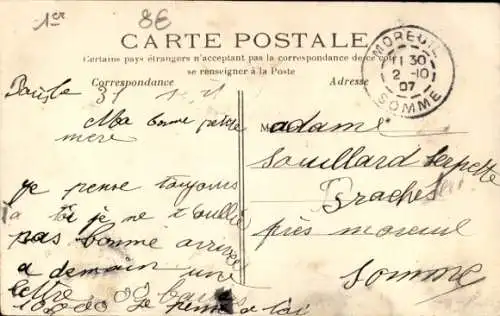 1er 8E
CARTE POSTALE
Certains pays étrangers n'acceptant pas la correspondance de ce côté
se renseigner à la Poste
Correspondance Adresse
MOREUIL
1 30
2 -10
07
SOMME
31
Ma bonne petite
mère
Madame
Souillard Serpette
Braches
près moreuil
Somme
Je pense toujours
a toi je ne t'oublie
pas bonne arrivée
a demain une
lettre
Je pense a toi